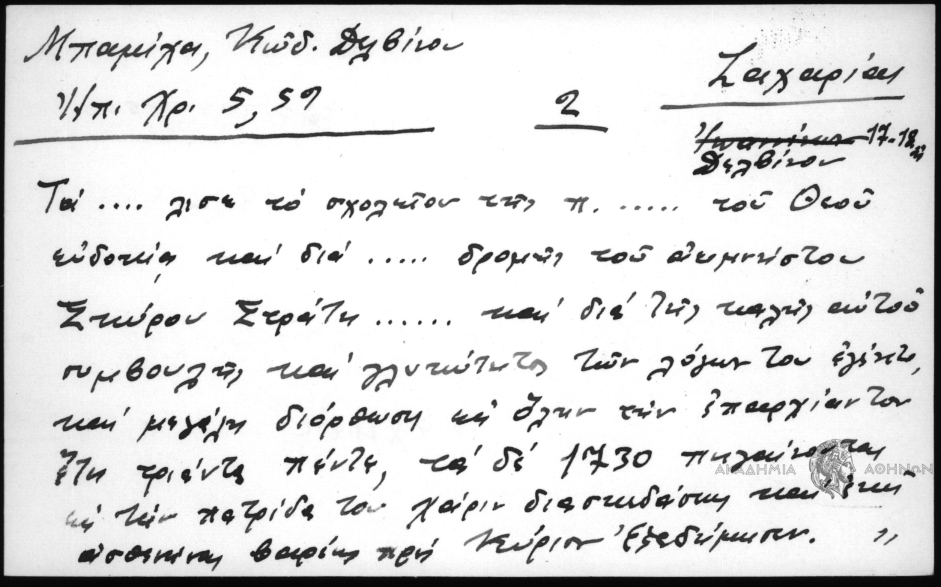 Μπαμίχα, Κώδ. Δελβίνου
Ἠπ. Χρ. 5, 59
2
Ζαχαρίας
Ἰωαννίνων 17-18
Δελβίνου
Τά .... λισε τό σχολεῖον τῆς π. ..... τοῦ Θεοῦ
εὐδοκίᾳ καί διά ..... δρομῆς τοῦ ἀειμνήστου
Σπύρου Στράτη ...... καί διά τῆς καλῆς αὐτοῦ
συμβουλῆς καί γλυκύτητος τῶν λόγων του ἐγένετο
καί μεγάλη διόρθωση εἰς ὅλην τήν ἐπαρχίαν του
ἔτη τριάντα πέντε, τά δέ 1730 πηγαίνοντας
εἰς τήν πατρίδα του χάριν διασκεδάσεως καί ἐκεῖ
ἀσθενήσας βαρέως πρός Κύριον ἐξεδήμησεν. "
ΑΚΑΔΗΜΙΑ ΑΘΗΝΩΝ